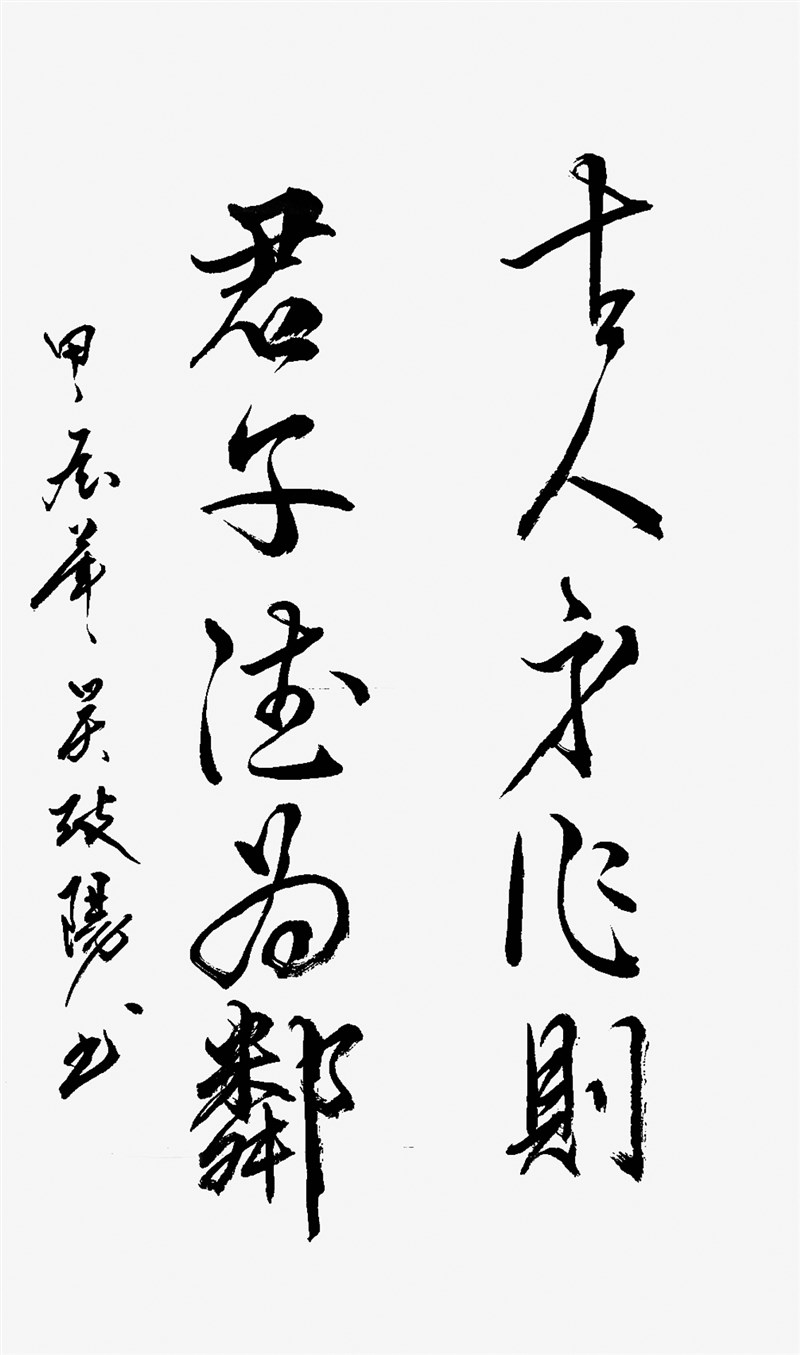 古人身作則
君子德為鄰
甲辰年吳歐陽書